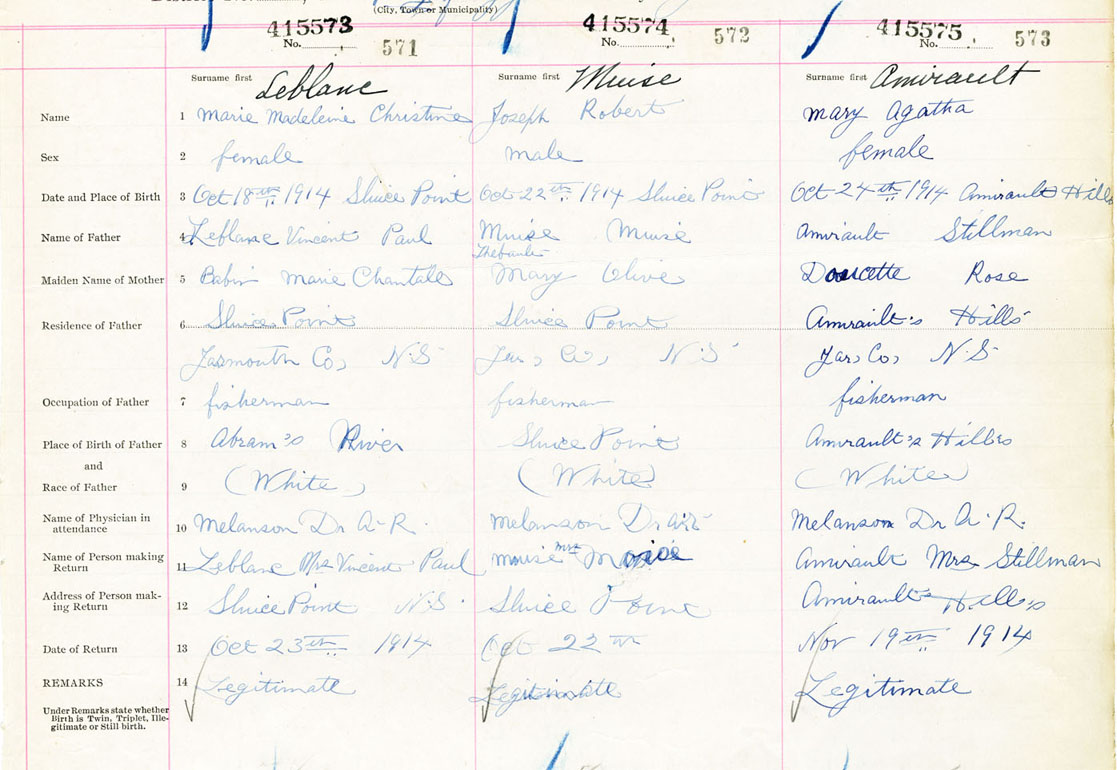 (City, Town or Municipality)
415573 415574 415575
No. 571 No. 572 No. 573
Surname first Leblanc Surname first Muise Surname first Amirault
Name 1 Marie Madeleine Christine Joseph Robert Mary Agatha
Sex 2 female male female
Date and Place of Birth 3 Oct 18th 1914 Sluice Point Oct 22th 1914 Sluice Point Oct 24th 1914 Amirault Hills
Name of Father 4 Leblanc Vincent Paul Muise Muise Amirault Stillman
Thebault
Maiden Name of Mother 5 Babin Marie Chantale Mary Olive Doucette Rose
Residence of Father 6 Sluice Point Sluice Point Amirault's Hills
Yarmouth Co, N.S Yar, Co, N.S Yar, Co, N.S
Occupation of Father 7 fisherman fisherman fisherman
Place of Birth of Father 8 Abram's River Sluice Point Amirault's Hills
and
Race of Father 9 (White) (White) (White)
Name of Physician in
attendance 10 Melanson Dr A.R. Melanson Dr Melanson Dr A.R.
Name of Person making
Return 11 Leblanc Mrs Vincent Paul Muise Mrs Amirault Mrs Stillman
Address of Person mak-
ing Return 12 Sluice Point N.S. Sluice Point Amirault's Hills
Date of Return 13 Oct 23th 1914 Oct 22th Nov 19th 1914
REMARKS 14 Legitimate Legitimate Legitimate
Under Remarks state whether
Birth is Twin, Triplet, Ille-
gitimate or Still-birth.